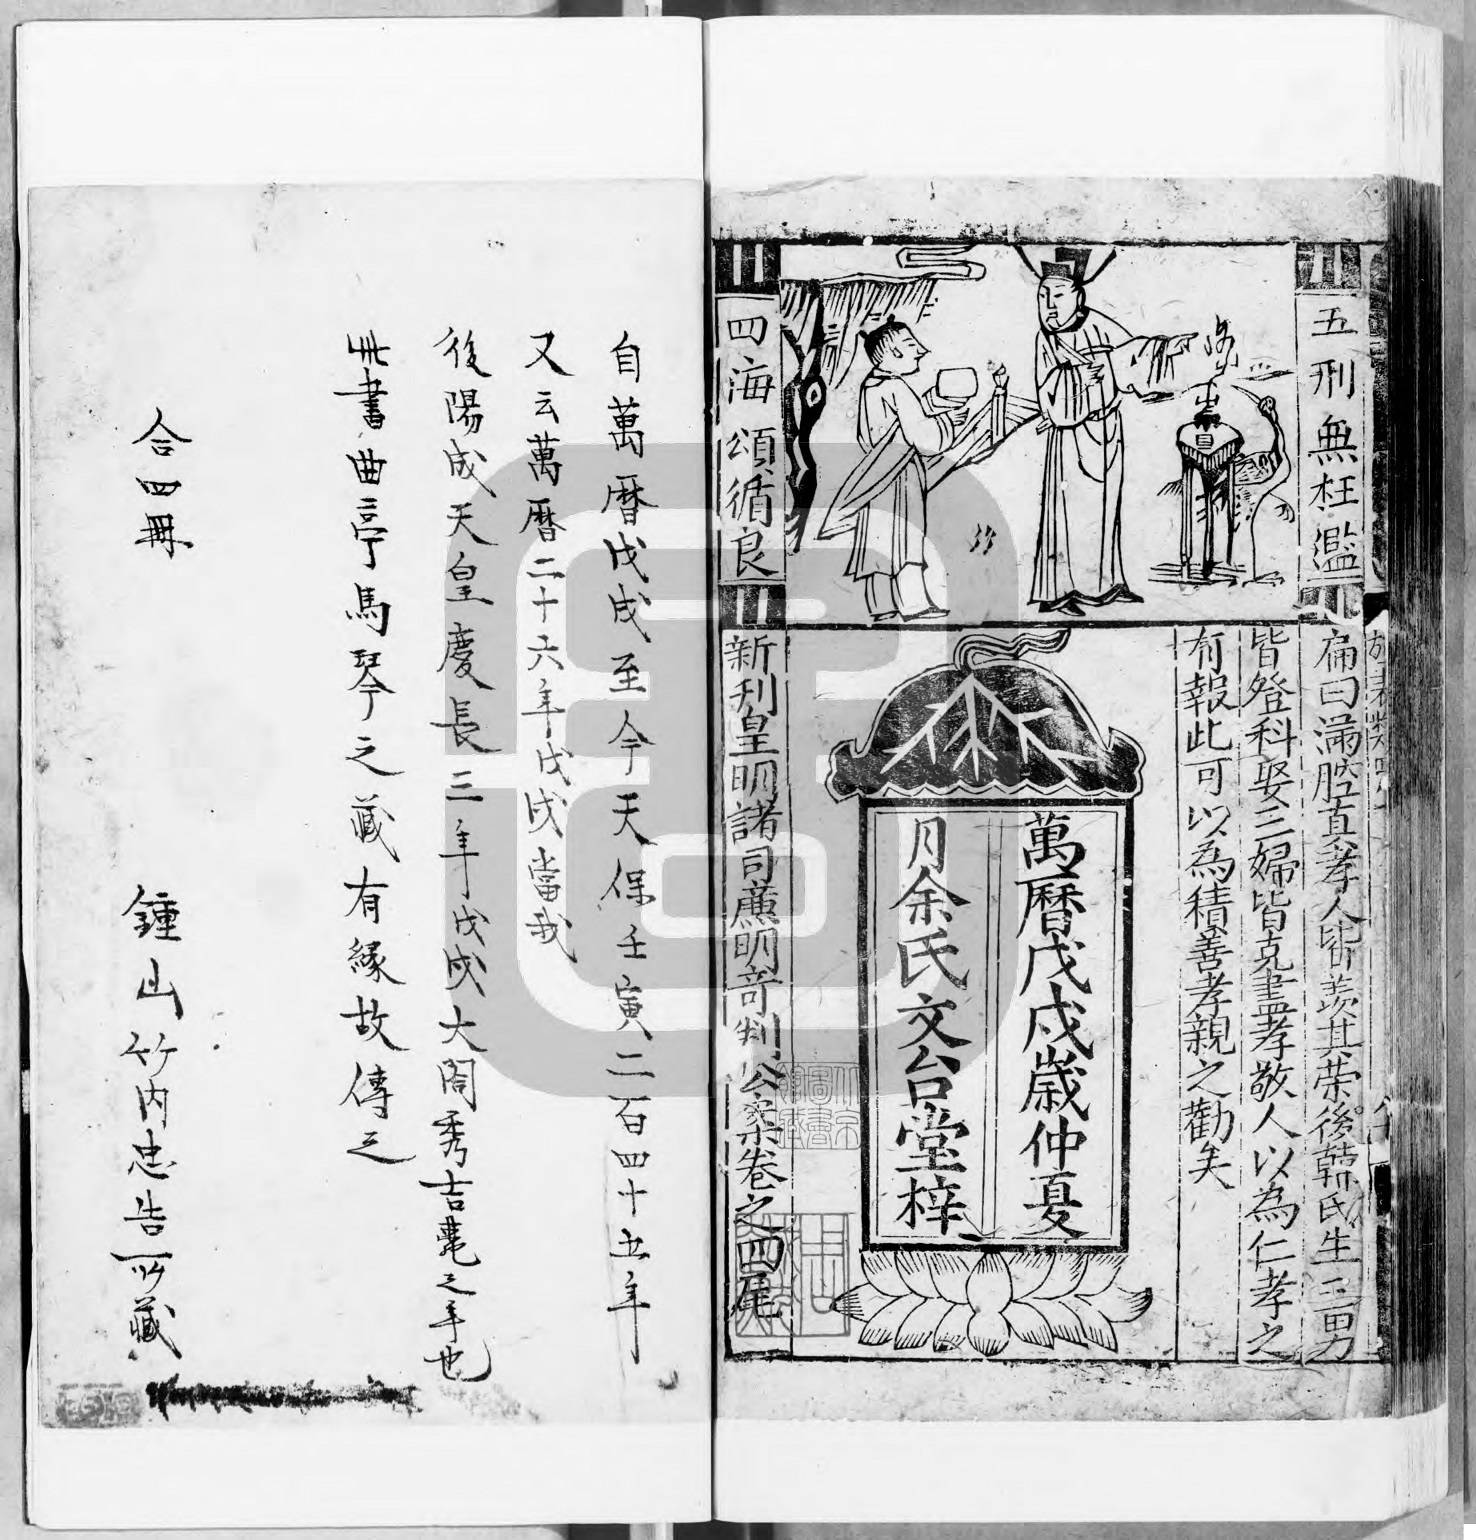 五刑無枉濫
四海頌循良
扁曰滿腔真孝人皆羨其荣後韓氏生三男
皆登科娶三婦皆克盡孝敬人以為仁孝之
有報此可以為積善孝親之勸矣
萬曆戊戌歲仲夏
月余氏文台堂梓
新刊皇明諸司廉明奇判公案卷之四尾
自萬曆戊戌至今天保壬寅二百四十五年
又云萬曆二十六年戊戌當我
後陽成天皇慶長三年戊戌大閤秀吉薨之年也
此書曲亭馬琴之藏有緣故傳之
合四冊
鍾山竹内忠告所藏